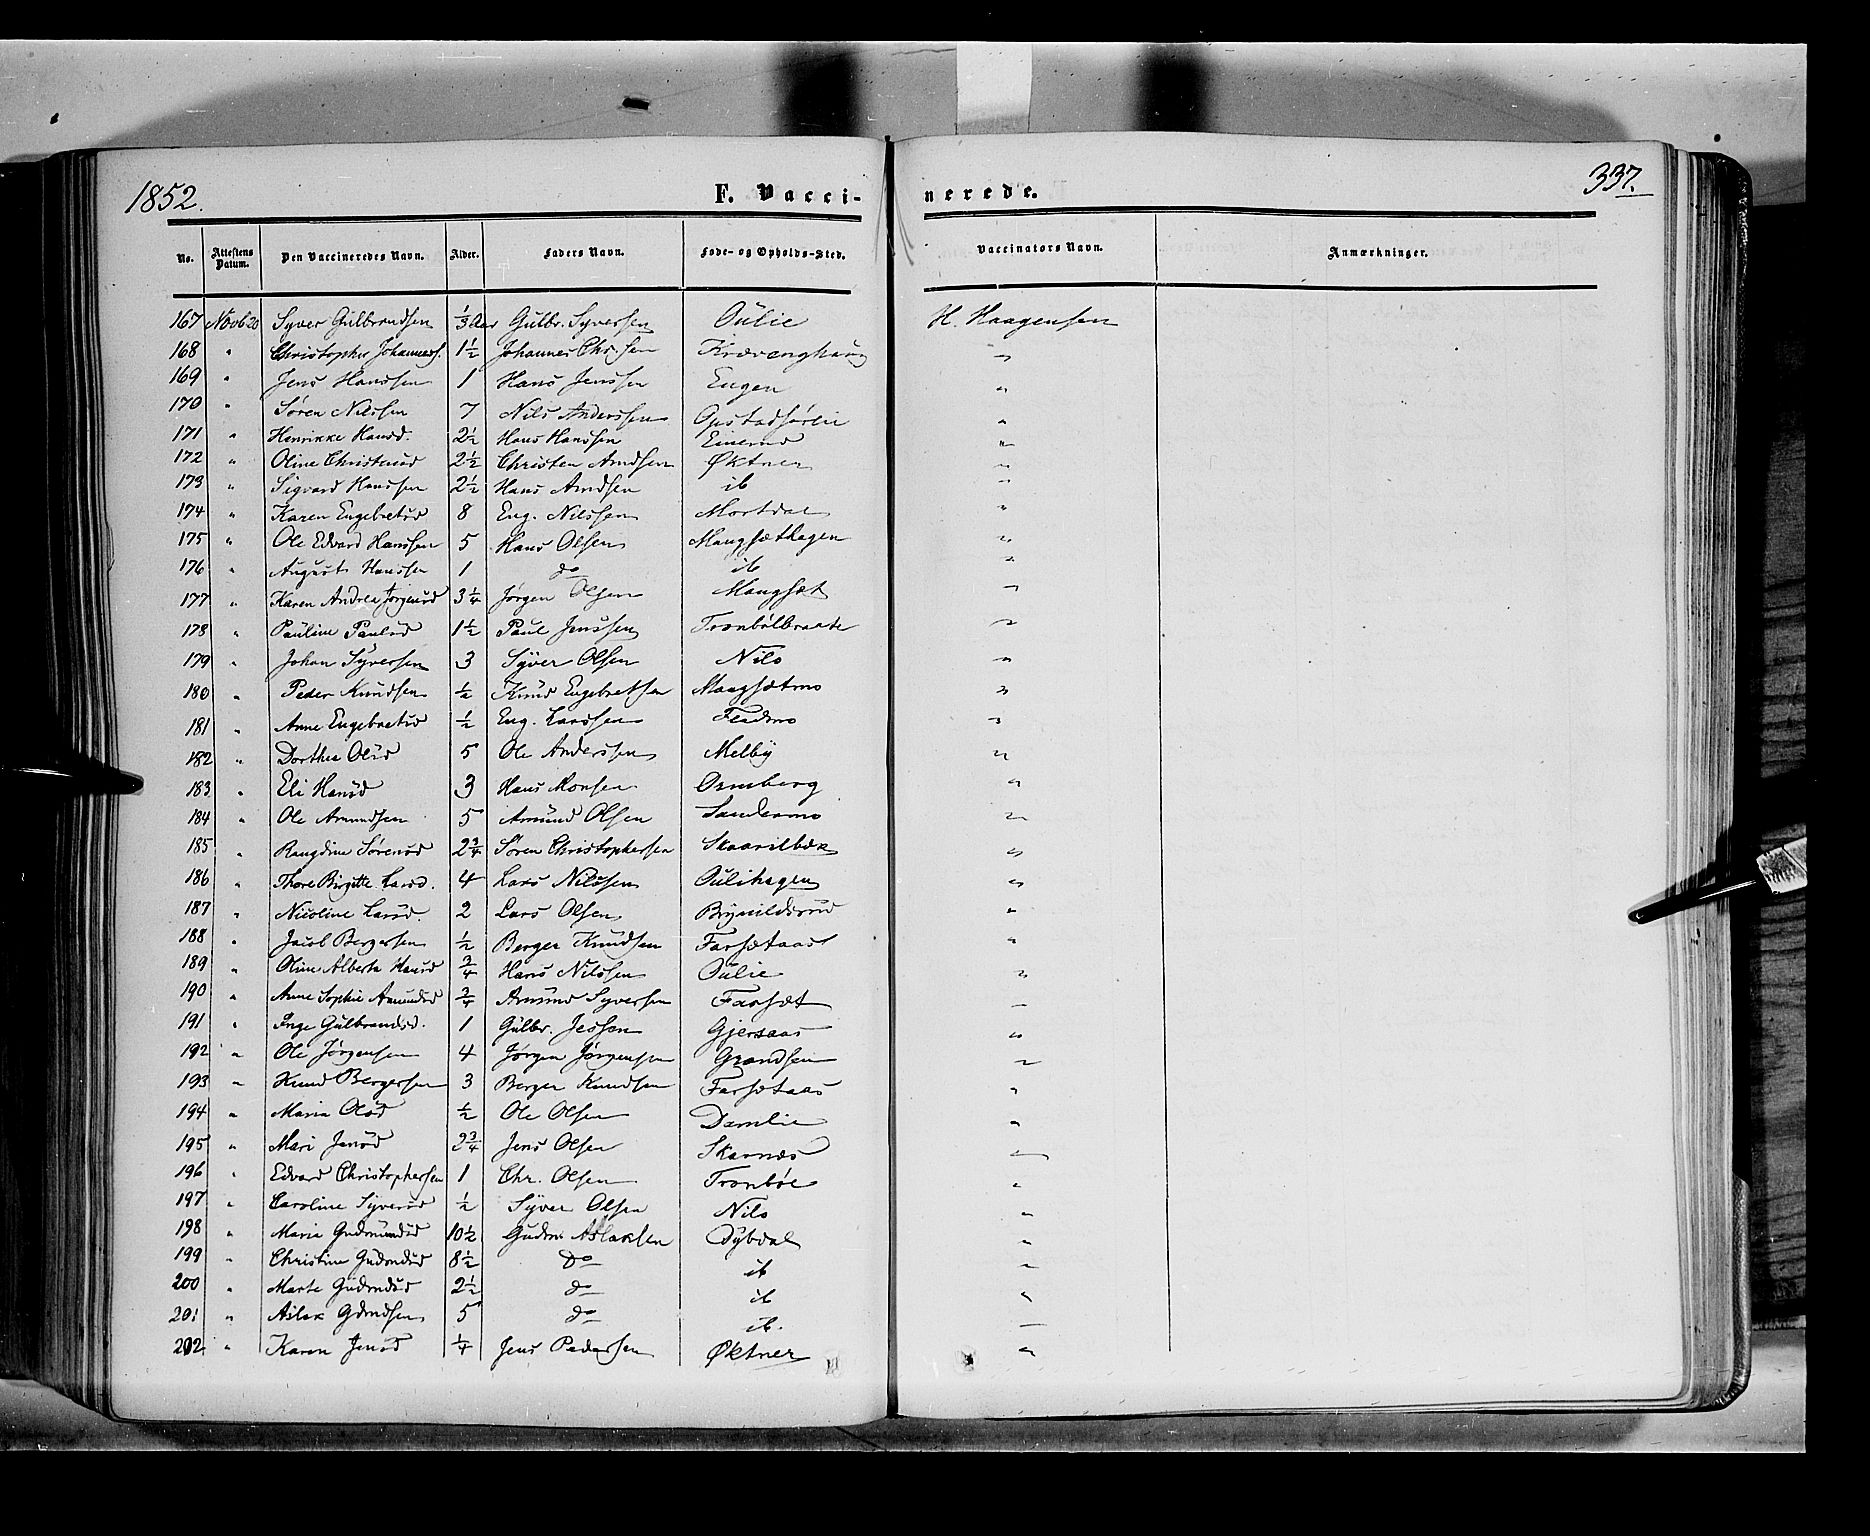 1852. F. Vaccinerede. 337.
No. Attestens Datum. Den Vaccineredes Navn. Alder. Faders Navn. Føde- og Opholds-Sted. Vaccinators Navn. Anmærkninger.
167 Novb 20 Syver Gulbrandsen 1/3 Aar Gulbr. Syversen Oulie H. Haagensen
168 " Christopher Johanness. 1 1/2 Johannes Chr.sen "
169 " Jens Hanssen 1 Hans Jenssen Eugen "
170 " Søren Nilssen 7 Nils Anderssen Opstadsørlie "
171 " Henrikke Hansd. 2 1/2 Hans Hanssen "
172 " Oline Christensd 2 1/2 Christen Arndsen Øktner "
173 " Sigvard Hanssen 2 1/2 Hans Arndsen ib "
174 " Karen Engebretsd 8 Eng. Nilssen Mortdal "
175 " Ole Edvard Hanssen 5 Hans Olsen Mangsæthagen "
176 " August Hanssen 1 do ib "
177 " Karen Andrea Jørgensd 3 1/4 Jørgen Olsen Mangsæt "
178 " Pauline Paulsd 1 1/2 Paul Jenssen Tronbølbraate "
179 " Johan Syversen 3 Syver Olsen Nilo "
180 " Peder Knudsen 1/2 Knud Engebretsen Mangsætmo "
181 " Anne Engebretsd 1/2 Eng. Larssen Fladmo "
182 " Dorthea Olsd 5 Ole Anderssen Melby "
183 " Eli Hansd 3 Hans Monsen Ormberg "
184 " Ole Amundsen 5 Amund Olsen Sandermo "
185 " Rangdine Sørensd 2 3/4 Søren Christophersen "
186 " Thore Birgitte Larsd. 4 Lars Nilssen Oulihagen "
187 " Nicoline Larsd. 2 Lars Olsen Brynildsrud "
188 " Jacob Bergersen 1/2 Berger Knudsen Farsætaas "
189 " Oline Alberte Hansd 3/4 Hans Nilssen Oulie "
190 " Anne Sophie Amundsd 3/4 Amund Syversen Farsæt "
191 " Inge Gulbrandsd. 1 Gulbr. Jessen Gjersaas "
192 " Ole Jørgensen 4 Jørgen Jørgensen Grandsen "
193 " Knud Bergersen 3 Berger Knudsen Farsætaas "
194 " Maria Olsd 1/2 Ole Olsen Damlie "
195 " Mari Jensd 2 3/4 Jens Olsen Skarnæs "
196 " Edvard Christophersen 1 Chr. Olsen Tronbøl "
197 " Caroline Syversd 1/2 Syver Olsen Nilo "
198 " Maria Gudmundsd 10 1/2 Gudm. Aslaksen Dybdal "
199 " Christine Gudmdsd 8 1/2 do ib "
200 " Marte Gudmdsd 2 1/2 do ib "
201 " Aslak Gdmdsen 5 do ib. "
202 " Karen Jensd 1/4 Jens Pedersen Øktner "